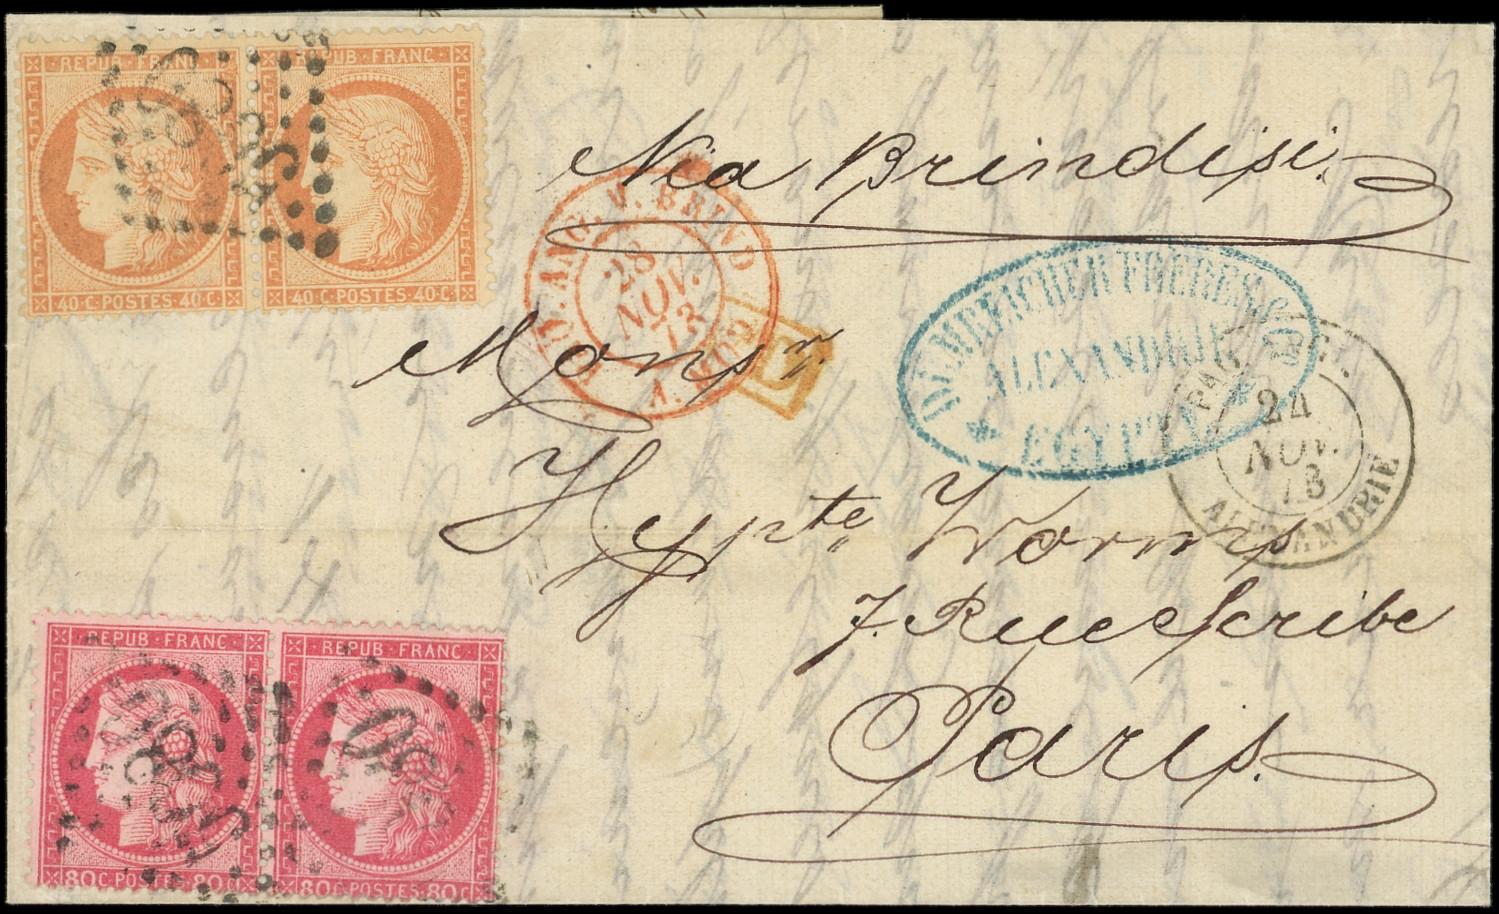 REPUB · FRANC
REPUB · FRANC
40·C·POSTES·40·C
40·C·POSTES·40·C
Via Brindisi.
ANG. V. BRIND
28
NOV.
73
Monsr.
FRERES
ALEXANDRIE
EGYPTE
24
NOV.
73
ALEXANDRIE
Hypte Worms
7. Rue Scribe
Paris.
REPUB · FRANC
REPUB · FRANC
80·C·POSTES·80·C
80·C·POSTES·80·C